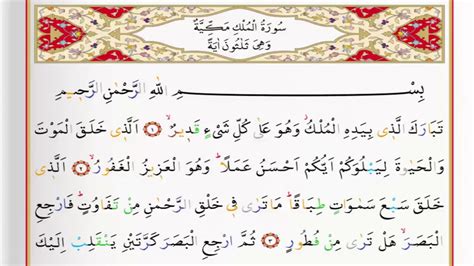 سُورَةُ الْمُلْكِ مَكِّيَّةٌ
وَهِىَ ثَلٰثُونَ اٰيَةً
بِسْمِ اللّٰهِ الرَّحْمٰنِ الرَّحٖيمِ
تَبَارَكَ الَّذٖى بِيَدِهِ الْمُلْكُۘ وَهُوَ عَلٰى كُلِّ شَیْءٍ قَدٖيرٌۙ ﴿١﴾ اَلَّذٖى خَلَقَ الْمَوْتَ
وَالْحَيٰوةَ لِيَبْلُوَكُمْ اَيُّكُمْ اَحْسَنُ عَمَلاًؕ وَهُوَ الْعَزٖيزُ الْغَفُورُۙ ﴿٢﴾ اَلَّذٖى
خَلَقَ سَبْعَ سَمٰوَاتٍ طِبَاقاًؕ مَا تَرٰى فٖى خَلْقِ الرَّحْمٰنِ مِنْ تَفَاوُتٍؕ فَارْجِعِ
الْبَصَرَۙ هَلْ تَرٰى مِنْ فُطُورٍ ﴿٣﴾ ثُمَّ ارْجِعِ الْبَصَرَ كَرَّتَيْنِ يَنْقَلِبْ اِلَيْكَ